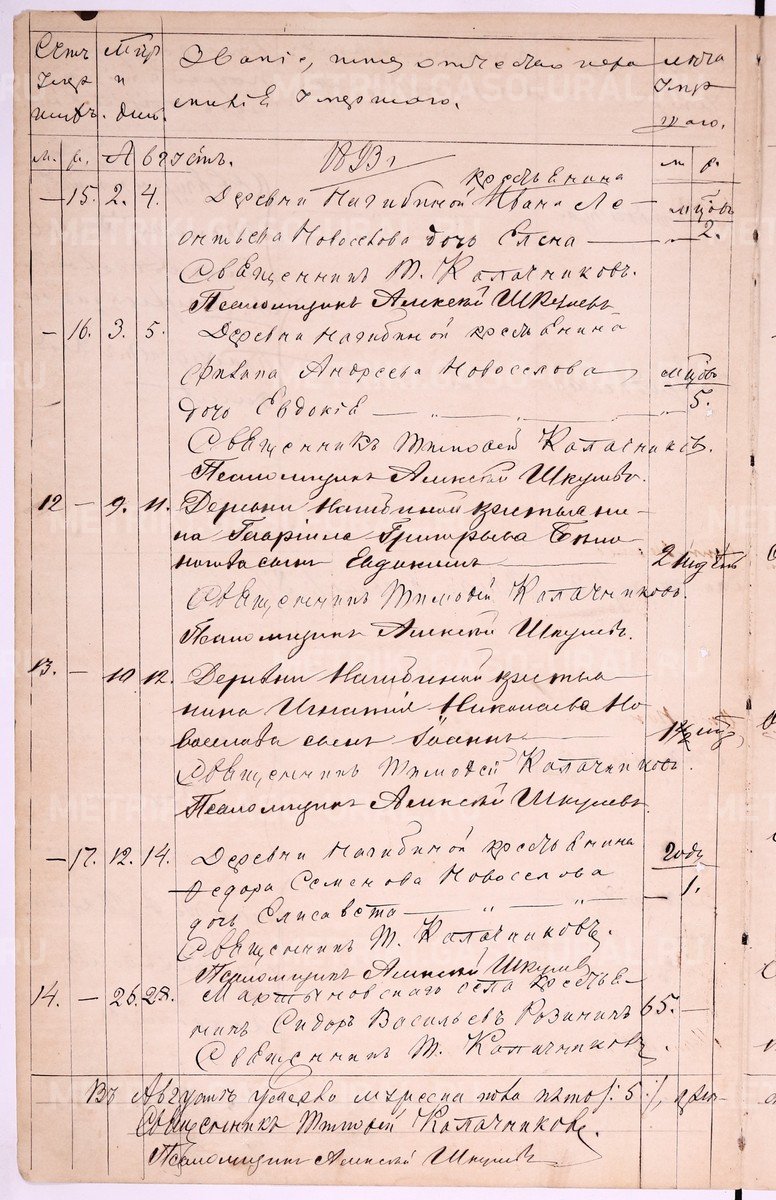 Счтъ Умер шихъ. Мцъ и дни. Званіе, имя отчество и фа милія Умершаго. лѣта Умер шаго.
м. ж. Августъ. 1893 г м. ж.
крестьянина
— 15. 2. 4. Деревни Нагибиной Ивана Ле- мцовъ
онтьева Новоселова дочь Елена — 2.
Священникъ Т. Калачниковъ.
Псаломщикъ Алексѣй Шкулевъ
— 16. 3. 5. Деревни Нагибиной крестьянина
Филипа Андреева Новоселова мцовъ
дочь Евдокія — „ — „ — „ 5.
Священникъ Тимофей Калачниковъ.
Псаломщикъ Алексѣй Шкулевъ.
12 — 9. 11. Деревни Нагибиной крестьяни-
на Гавріила Григорьева
сынъ Евдокимъ — 2 недѣль
Священникъ Тимофей Калачниковъ.
Псаломщикъ Алексѣй Шкулевъ.
13. — 10 12. Деревни Нагибиной крестья-
нина Игнатія Николаева Но-
воселова сынъ Іоаннъ — 1 1/2 мцъ
Священникъ Тимофей Калачниковъ.
Псаломщикъ Алексѣй Шкулевъ
— 17. 12. 14. Деревни Нагибиной крестьянина году
Федора Семенова Новоселова — 1.
дочь Елисавета — „ — „ —
Священникъ Т. Калачниковъ.
Псаломщикъ Алексѣй Шкулевъ
14. — 26. 28. Мартыновскаго села крестья-
нинъ Сидоръ Васильевъ 65. —
Священникъ Т. Калачниковъ.
Въ Августѣ умерло мужеска пола пять /: 5 :/,
Священникъ Тимофей Калачниковъ.
Псаломщикъ Алексѣй Шкулевъ